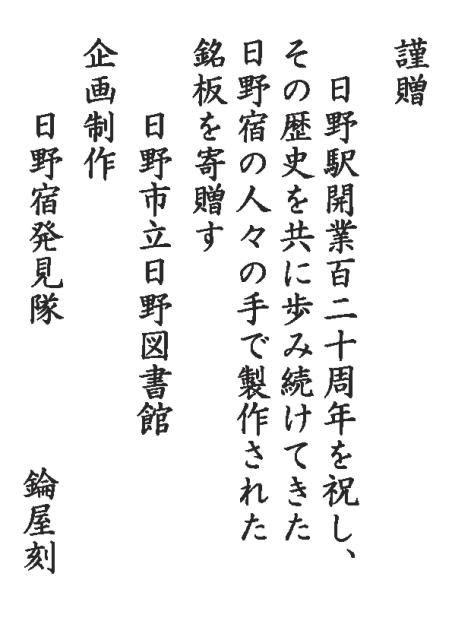 謹贈
日野駅開業百二十周年を祝し、
その歴史を共に歩み続けてきた
日野宿の人々の手で製作された
銘板を寄贈す
日野市立日野図書館
企画制作
日野宿発見隊
錀屋刻